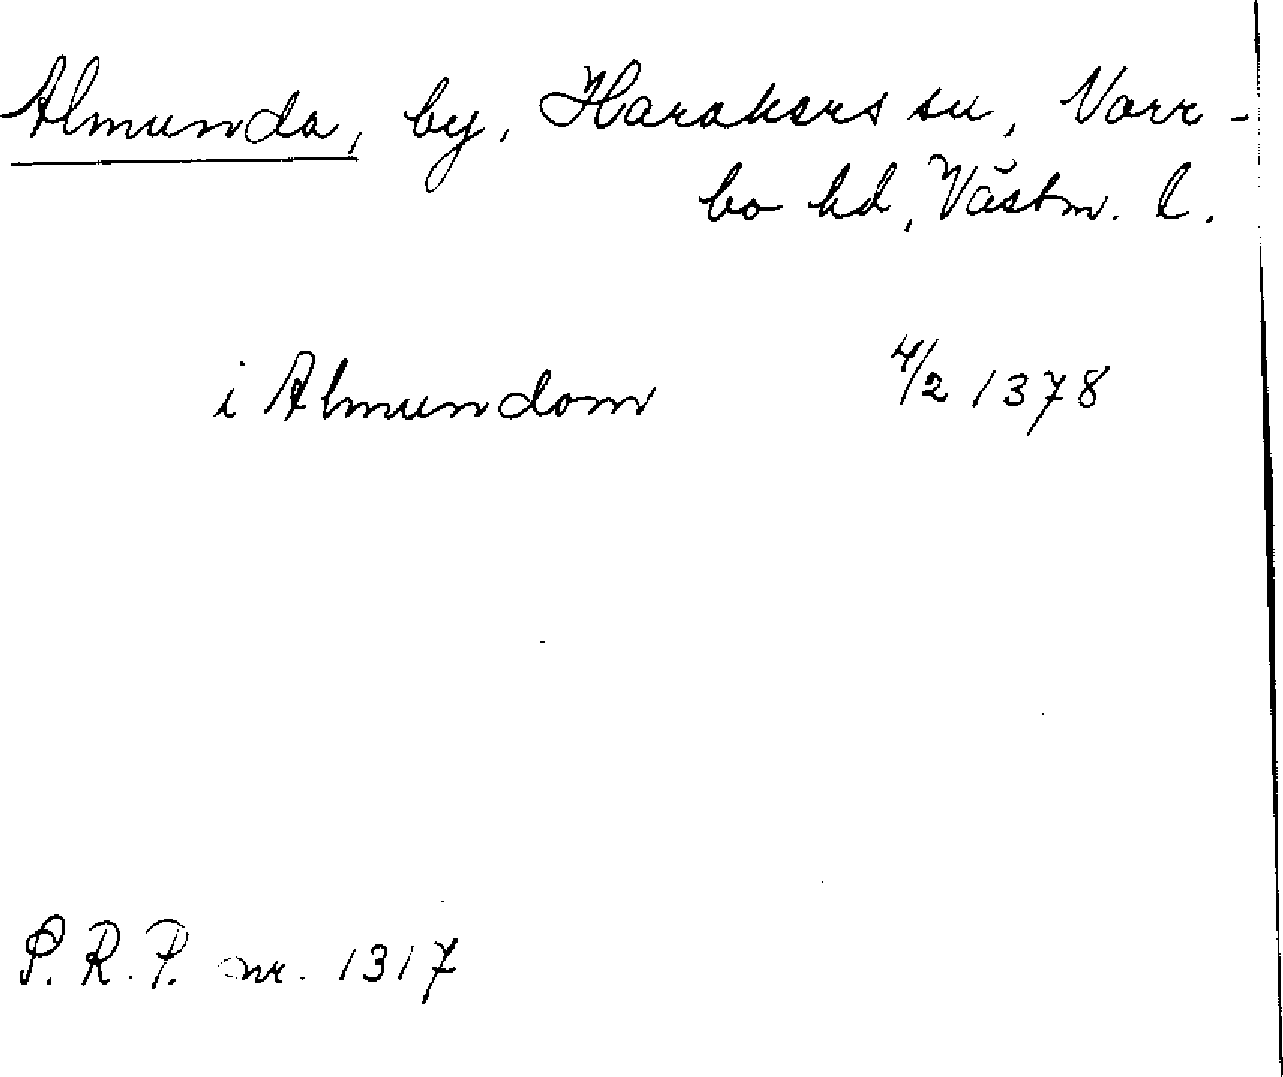 Almunda, by, Harakers sn, Vavr-
bo hd, Västm. l.
i Almundom 4/2 1378
P. R. P. nr. 1317